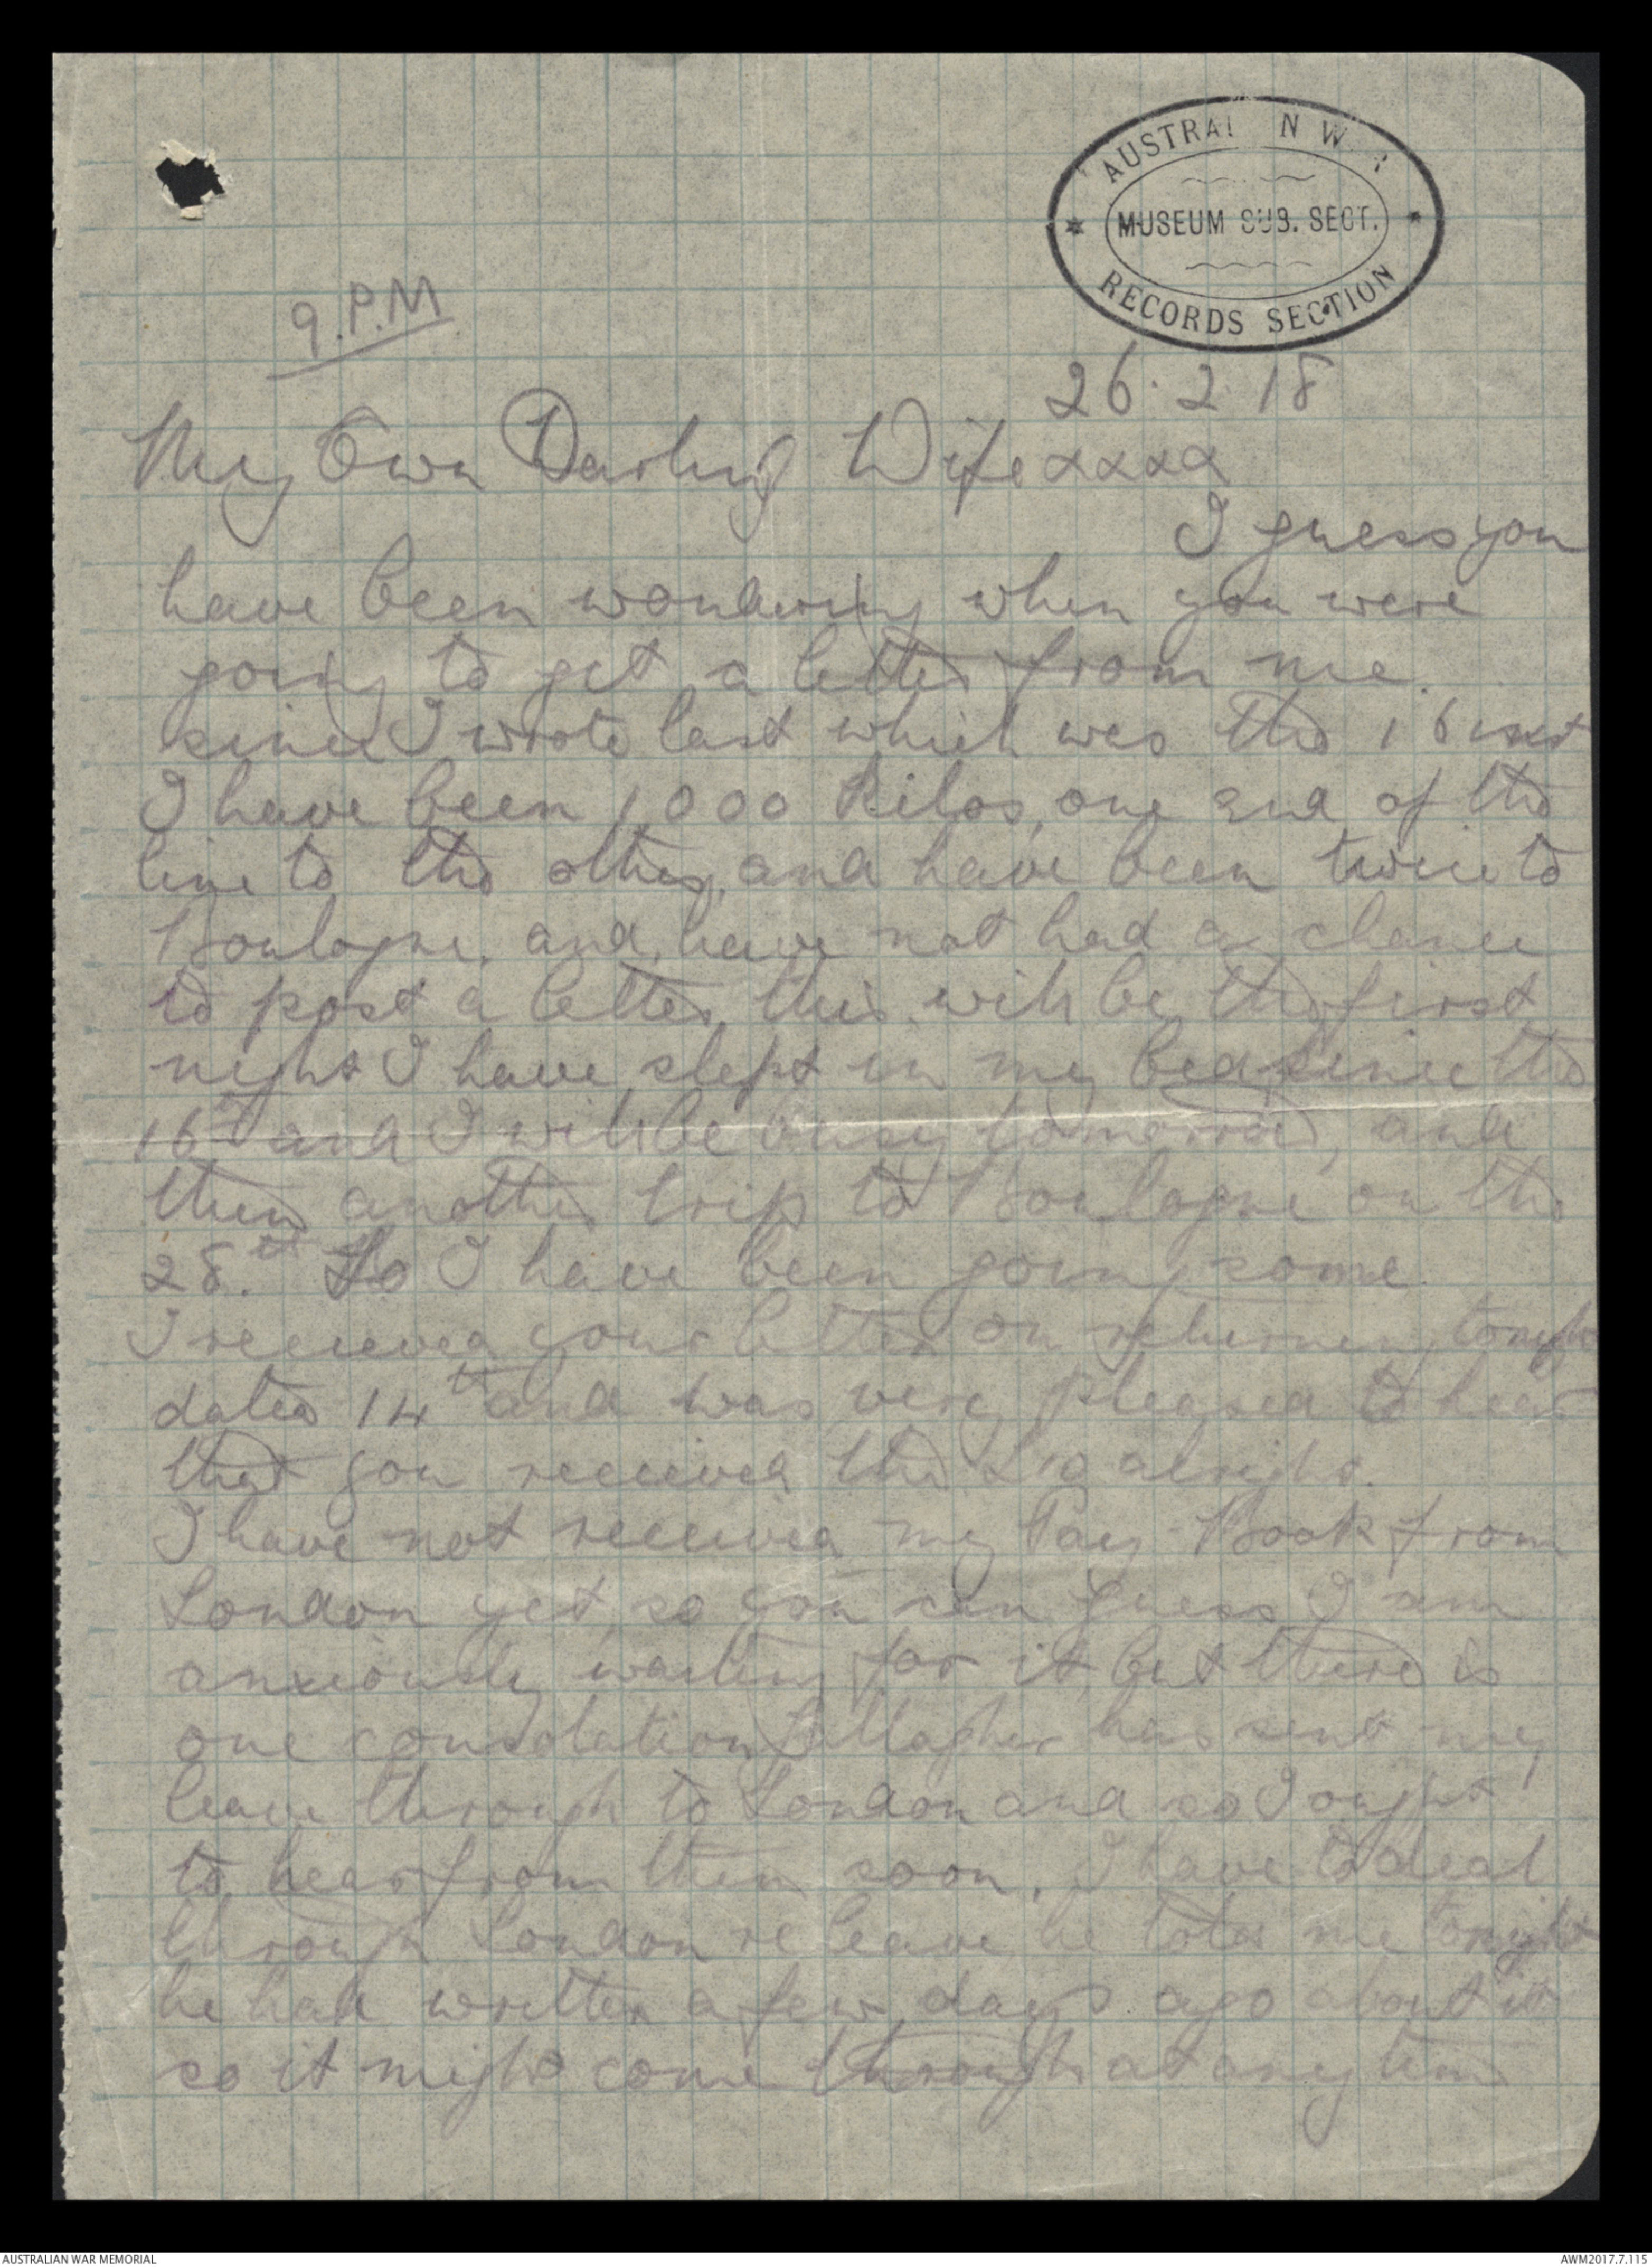 AUSTRALIAN WAR
MUSEUM SUB. SECT.
RECORDS SECTION
9.P.M
26.2.18
My Own Darling Wife xxxx
I guess you
have been wondering when you were
going to get a letter from me.
since I wrote last which was the 16 inst
I have been 1,000 Kilos, one end of the
line to the other, and have been twice to
Boulogne. and have not had a chance
to post a letter, this will be the first
night I have slept in my bed since the
16th and I will be busy tomorrow, and
then another trip to Boulogne on the
28.th So I have been going some.
I received your letter on returning tonight
dated 14th and was very pleased to hear
that you received the £10 alright.
I have not received my Pay-Book from
London yet, so you can guess I am
anxiously waiting for it, but there is
one consolation, has sent my
leave through to London and so I ought
to hear from them soon. I have to deal
through London re leave, he told me tonight
he had written a few days ago about it
so it might come through at any time
AUSTRALIAN WAR MEMORIAL
AWM2017.7.115